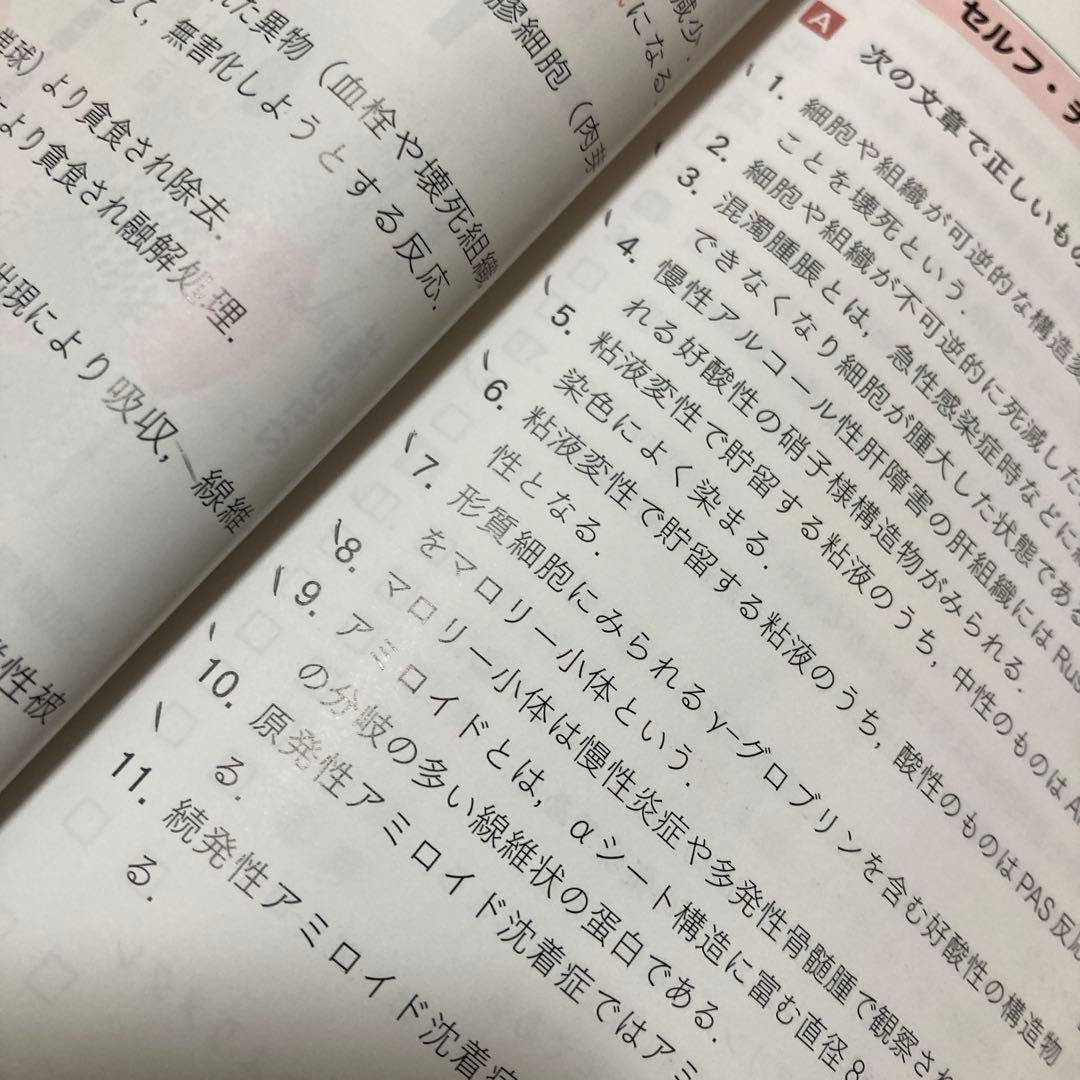 減少.
れた異物（血栓や壊死組織
して，無害化しようとする反応.
膠細胞（肉芽
になる.
より貪食され除去.
より貪食され融解処理.
出現により吸収，線維
性被
セルフ・チ
A 次の文章で正しいもの
1. 細胞や組織が可逆的な構造変
ことを壊死という.
2. 細胞や組織が不可逆的に死滅した
3. 混濁腫脹とは，急性感染症時などに
できなくなり細胞が腫大した状態である
4. 慢性アルコール性肝障害の肝組織にはRus
れる好酸性の硝子様構造物がみられる.
5. 粘液変性で貯留する粘液のうち，中性のものはA
染色によく染まる.
6. 粘液変性で貯留する粘液のうち，酸性のものはPAS反応
性となる.
7. 形質細胞にみられるγ-グロブリンを含む好酸性の構造物
をマロリー小体という.
8. マロリー小体は慢性炎症や多発性骨髄腫で観察され
9. アミロイドとは，αシート構造に富む直径8
の分岐の多い線維状の蛋白である.
10. 原発性アミロイド沈着症ではアミ
る.
11. 続発性アミロイド沈着症
る.